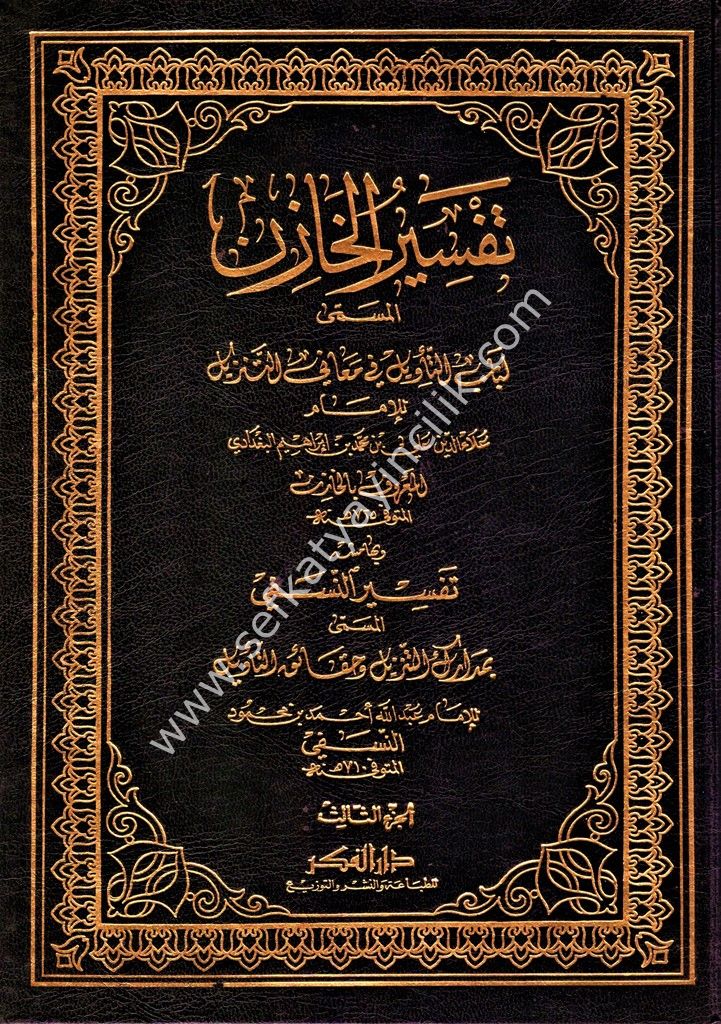 تَفْسِيرُ الخَازِن
المسمّى
لباب التّأويل في معاني التنزيل
للإمام
علاء الدين علي بن محمد بن إبراهيم البغدادي
المعروف بالخازن
المتوفى ٧٢٥ هـ
وبهامشه
تفسير النسفي
المسمّى
بمدارك التنزيل وحقائق التأويل
للإمام عبد الله أحمد بن محمود
النسفي
المتوفى ٧١٠ هـ
الجزء الثالث
دار الفكر
للطباعة والنشر والتوزيع
www.serkatyayincilik.com